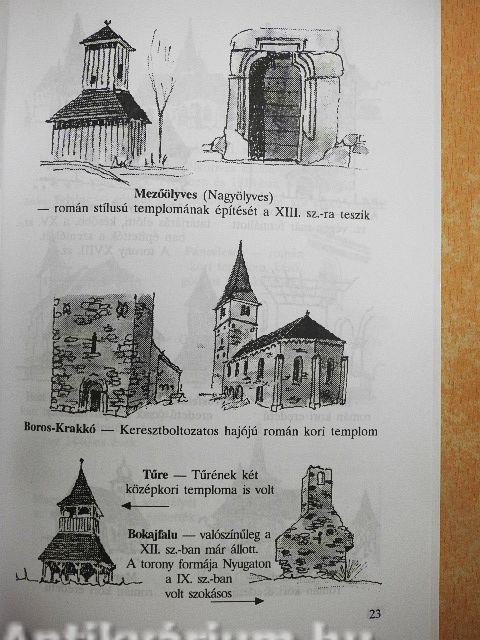 Mezőölyves (Nagyölyves)
— román stílusú templomának építését a XIII. sz.-ra teszik
Boros-Krakkó — Keresztboltozatos hajójú román kori templom
Türe — Türének két
középkori temploma is volt
Bokajfalu — valószínűleg a
XII. sz.-ban már állott.
A torony formája Nyugaton
a IX. sz.-ban
volt szokásos
23
Antikvárium.hu